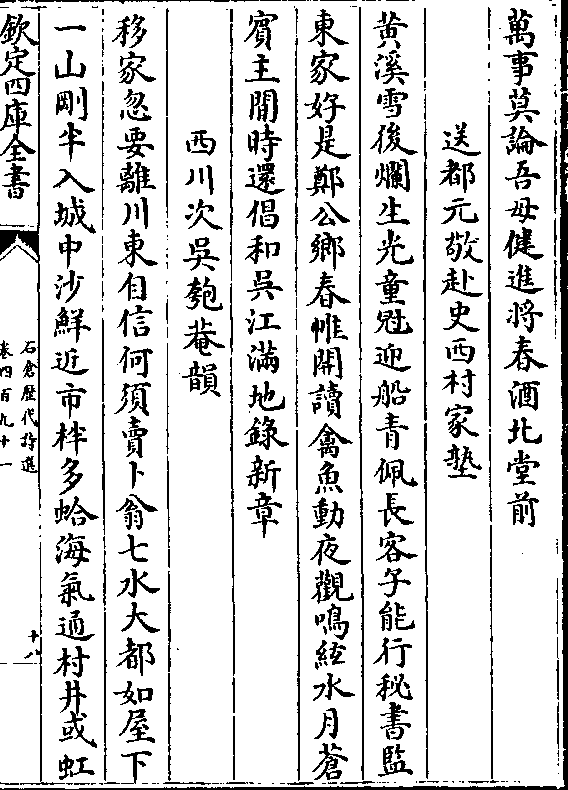 萬事莫論吾母健進將春酒北堂前
送都元敬赴史西村家塾
黄溪雪後爛生光童冠迎船青佩長客子能行秘書監
東家好是鄭公鄉春帷開讀禽魚動夜觀鳴絃水月蒼
賓主閒時還倡和吳江滿地錄新章
西川次吳匏菴韻
移家忽要離川東自信何須賣卜翁七水大都如屋下
一山剛半入城中沙鮮近市柈多蛤海氣通村井或虹
欽定四庫全書
石倉歴代詩選
卷四百九十一
十八